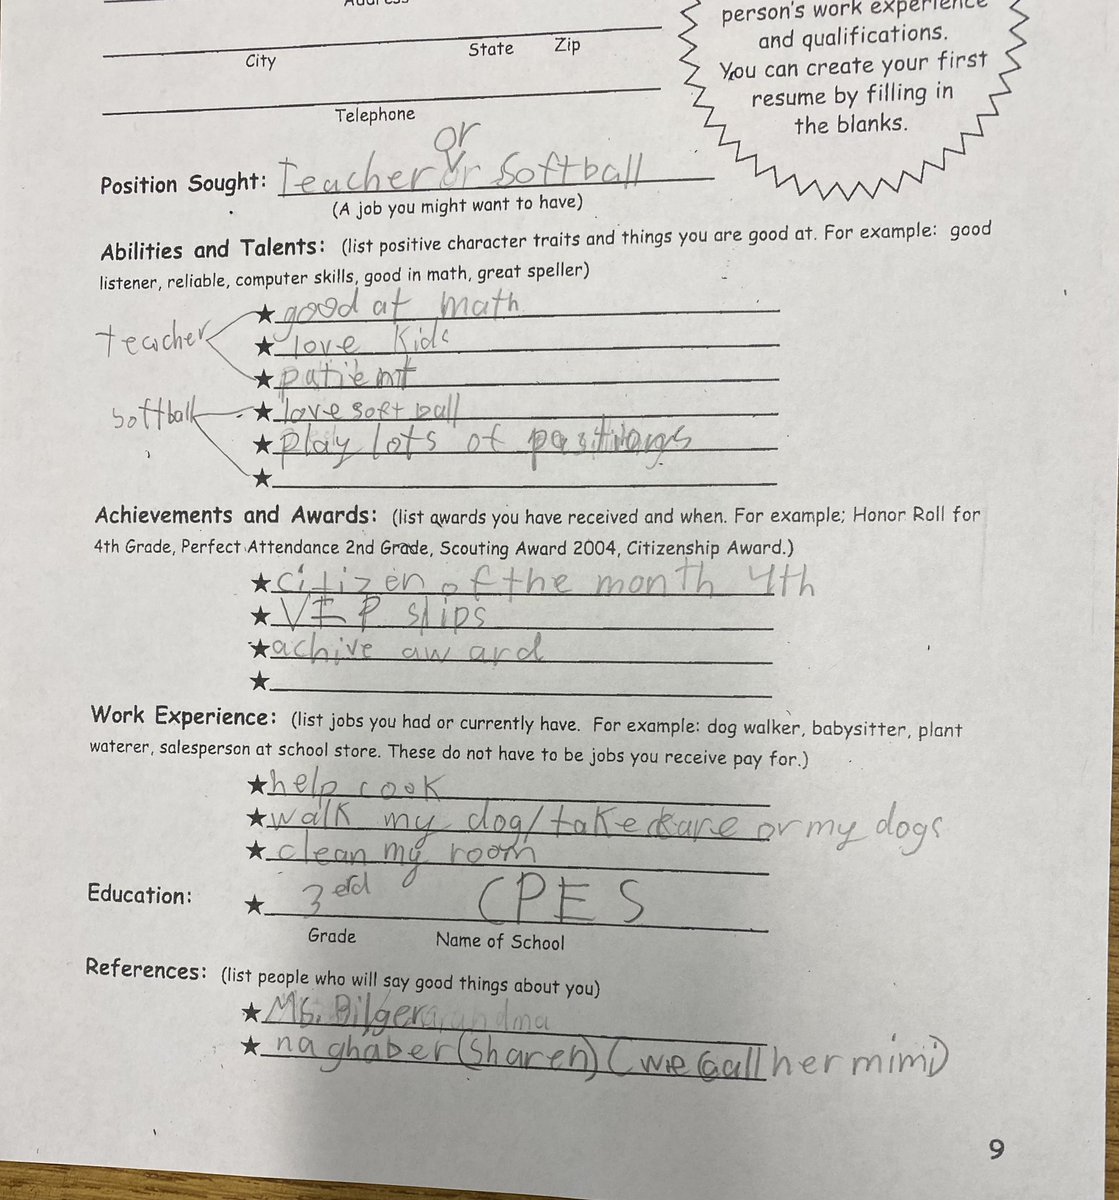 Address
person's work experience
and qualifications.
You can create your first
resume by filling in
the blanks.
City State Zip
Telephone
or
Position Sought: teacher or softball
(A job you might want to have)
Abilities and Talents: (list positive character traits and things you are good at. For example: good
listener, reliable, computer skills, good in math, great speller)
★ good at math
teacher
★ love kids
★ patient
softball
★ love soft ball
★ play lots of
★
Achievements and Awards: (list awards you have received and when. For example; Honor Roll for
4th Grade, Perfect Attendance 2nd Grade, Scouting Award 2004, Citizenship Award.)
★ citizen of the month 4th
★ VIP slips
★ achive award
★
Work Experience: (list jobs you had or currently have. For example: dog walker, babysitter, plant
waterer, salesperson at school store. These do not have to be jobs you receive pay for.)
★ help cook
★ walk my dog/take care or my dogs
★ clean my room
Education: ★ 3erd CPES
Grade Name of School
References: (list people who will say good things about you)
★ Ms. Bilger
★ naghaber (Sharen) (we call her mimi)
9